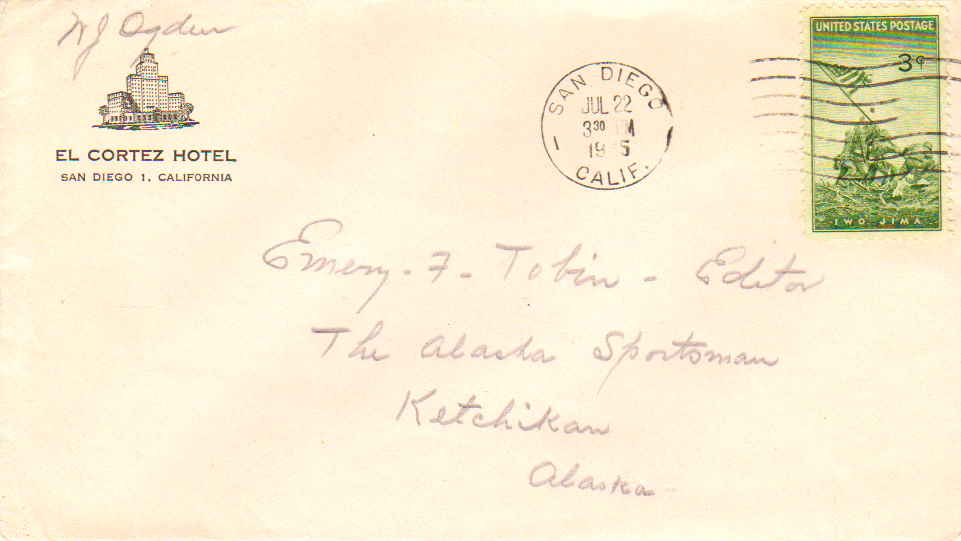 WJ Ogden
EL CORTEZ HOTEL
SAN DIEGO 1, CALIFORNIA
SAN DIEGO
JUL 22
3 30 PM
CALIF.
UNITED STATES POSTAGE
3¢
IWO JIMA
Emery - F - Tobin - Editor
The Alaska Sportsman
Ketchikan
Alaska -